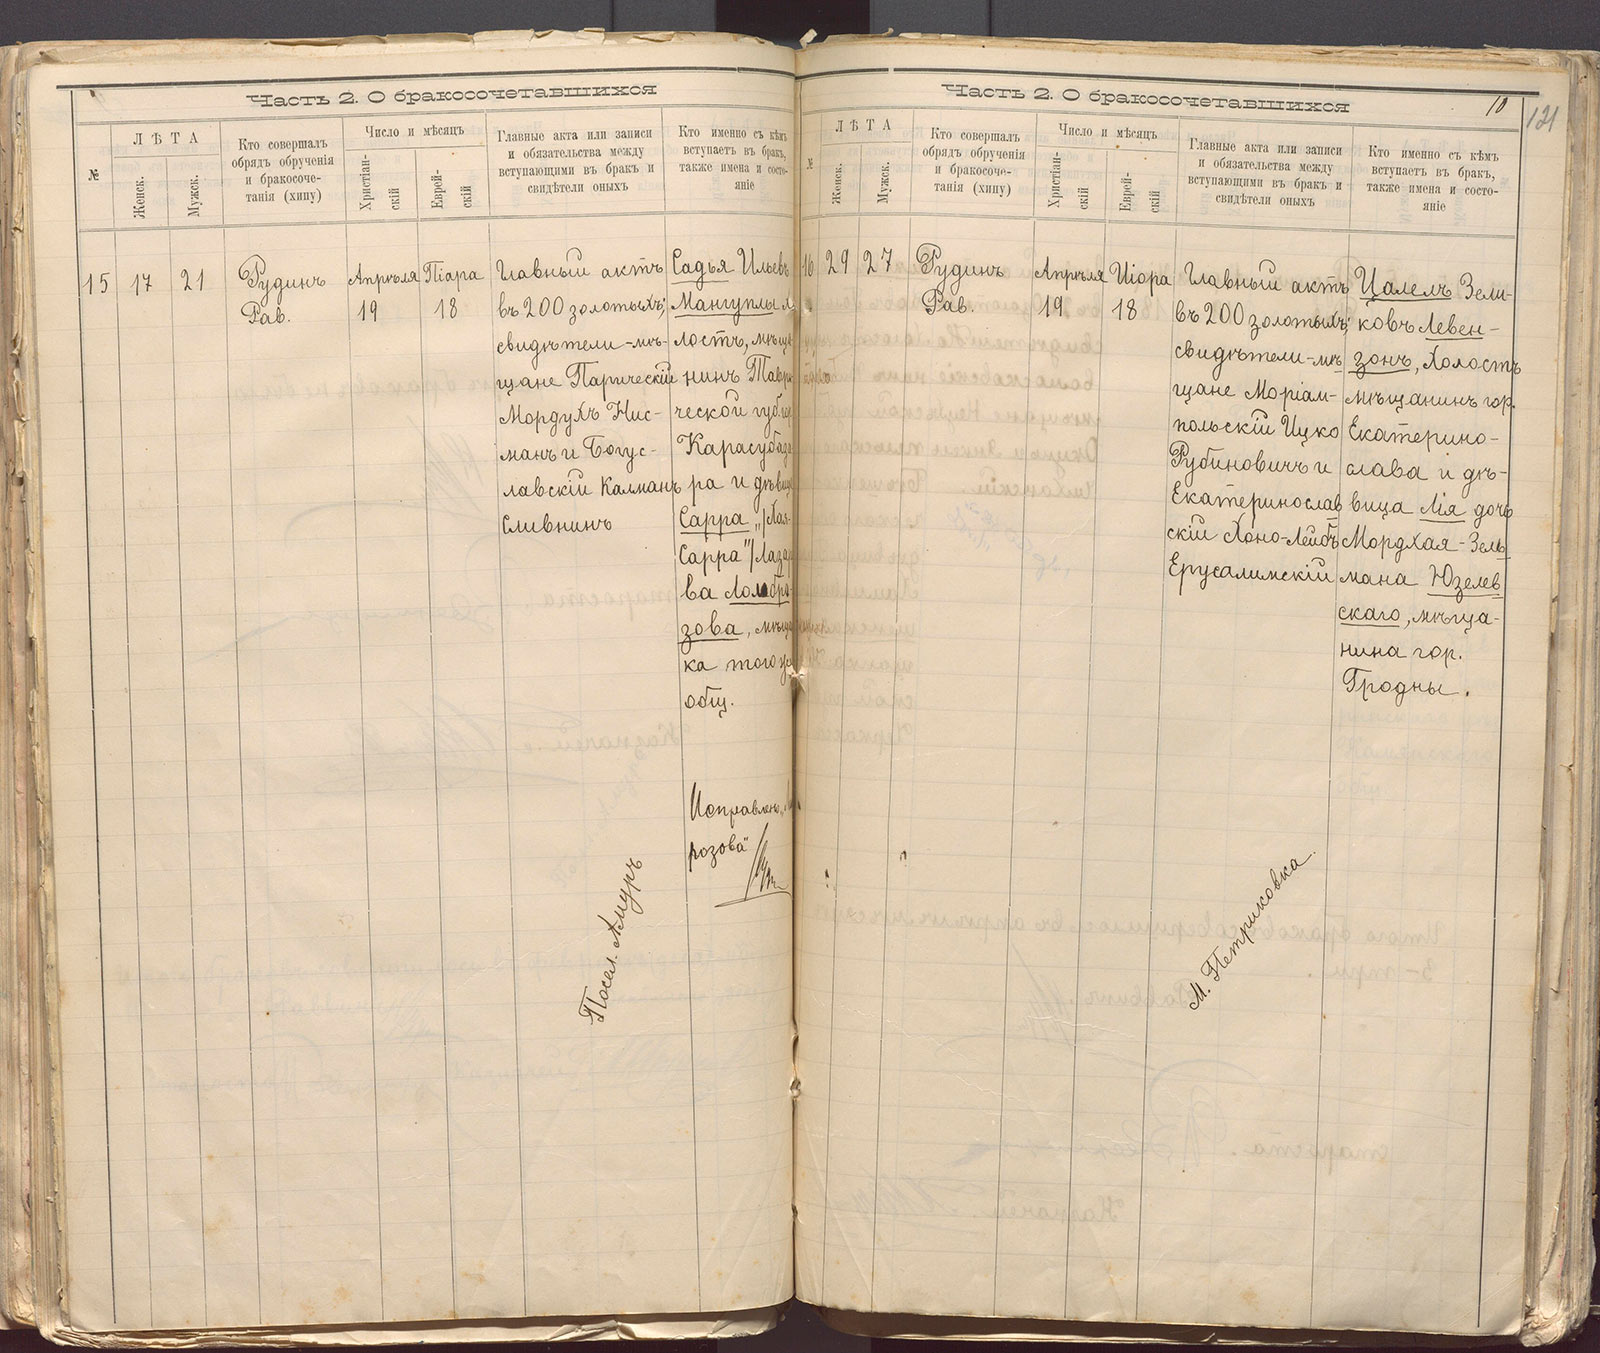 Часть 2. О бракосочетавшихся
№
ЛѢТА
Женск.
Мужск.
Кто совершалъ
обрядъ обрученія
и бракосоче-
танія (хипу)
Число и мѣсяцъ
Христіан-
скій
Еврей-
скій
Главные акта или записи
и обязательства между
вступающими въ бракъ и
свидѣтели оныхъ
Кто именно съ кѣмъ
вступаетъ въ бракъ,
также имена и состо-
яніе
15
17
21
Рудинъ
Рав.
Апрѣля
19
Піара
18
Главный актъ
въ 200 золотыхъ;
свидѣтели-мѣ-
щане Парическій
Мордухъ Нис-
манъ и Богус-
лавскій Калманъ
Сливнинъ
Садья Ильевъ
Мангуплы
лостъ, мѣща
нинъ Таври
ческой губер
Карасубаза
ра и дѣвица
Сарра „/Хая-
Сарра"/Лаза
ва Ломбро-
зова, мѣща
ка того
общ.
Исправлен
розова"
Посел. Амуръ
Часть 2. О бракосочетавшихся
10
121
№
ЛѢТА
Женск.
Мужск.
Кто совершалъ
обрядъ обрученія
и бракосоче-
танія (хипу)
Число и мѣсяцъ
Христіан-
скій
Еврей-
скій
Главные акта или записи
и обязательства между
вступающими въ бракъ и
свидѣтели оныхъ
Кто именно съ кѣмъ
вступаетъ въ бракъ,
также имена и состо-
яніе
16
29
27
Рудинъ
Рав.
Апрѣля
19
Иіора
18
Главный актъ
въ 200 золотыхъ;
свидѣтели-мѣ-
щане Моріам-
польскій Ицко
Рубиновичъ и
Екатеринослав
скій Хоно-Лейбъ
Ерусалимскій
Цалелъ Зели-
ковъ Левен-
зонъ, холостъ
мѣщанинъ гор.
Екатерино-
слава и дѣ-
вица Лія дочь
Мордхая-Зель
мана Юзелев
скаго, мѣща-
нина гор.
Гродны.
М. Петриковка.